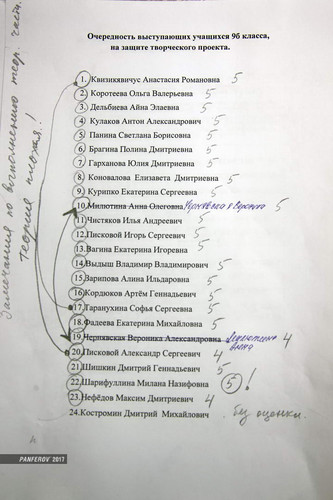 Очередность выступающих учащихся 9б класса,
на защите творческого проекта.
Замечания по выполнению теор. части.
Теория плохая!
1. Квизикявичус Анастасия Романовна 5
2. Коротеева Ольга Валерьевна 5
3. Дельбиева Айна Элаевна 5
4. Кулаков Антон Александрович 5
5. Панина Светлана Борисовна 5
6. Брагина Полина Дмитриевна 5
7. Гарханова Юлия Дмитриевна 5
8. Коновалова Елизавета Дмитриевна 5
9. Курипко Екатерина Сергеевна 5
10. Милютина Анна Олеговна 5
11. Чистяков Илья Андреевич 5
12. Писковой Игорь Сергеевич 5
13. Вагина Екатерина Игоревна 5
14. Выдыш Владимир Владимирович 5
15. Зарипова Алина Ильдаровна 5
16. Кордюков Артём Геннадьевич 5
17. Таранухина Софья Сергеевна 5
18. Фадеева Екатерина Михайловна 5
19. Чернявская Вероника Александровна 4
20. Писковой Александр Сергеевич 4
21. Шишкин Дмитрий Геннадьевич 5
22. Шарифуллина Милана Назифовна 5!
23. Нефёдов Максим Дмитриевич 4
24. Костромин Дмитрий Михайлович без оценки.
PANFEROV 2017